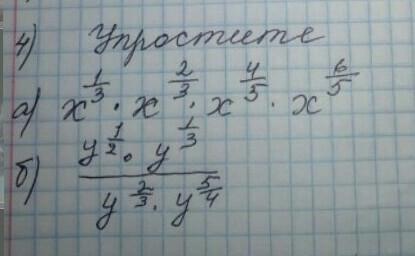 4) Упростите
а) x^{1/3} · x^{2/3} · x^{4/5} · x^{6/5}
б) \frac{y^{1/2} · y^{1/3}}{y^{2/3} · y^{5/4}}